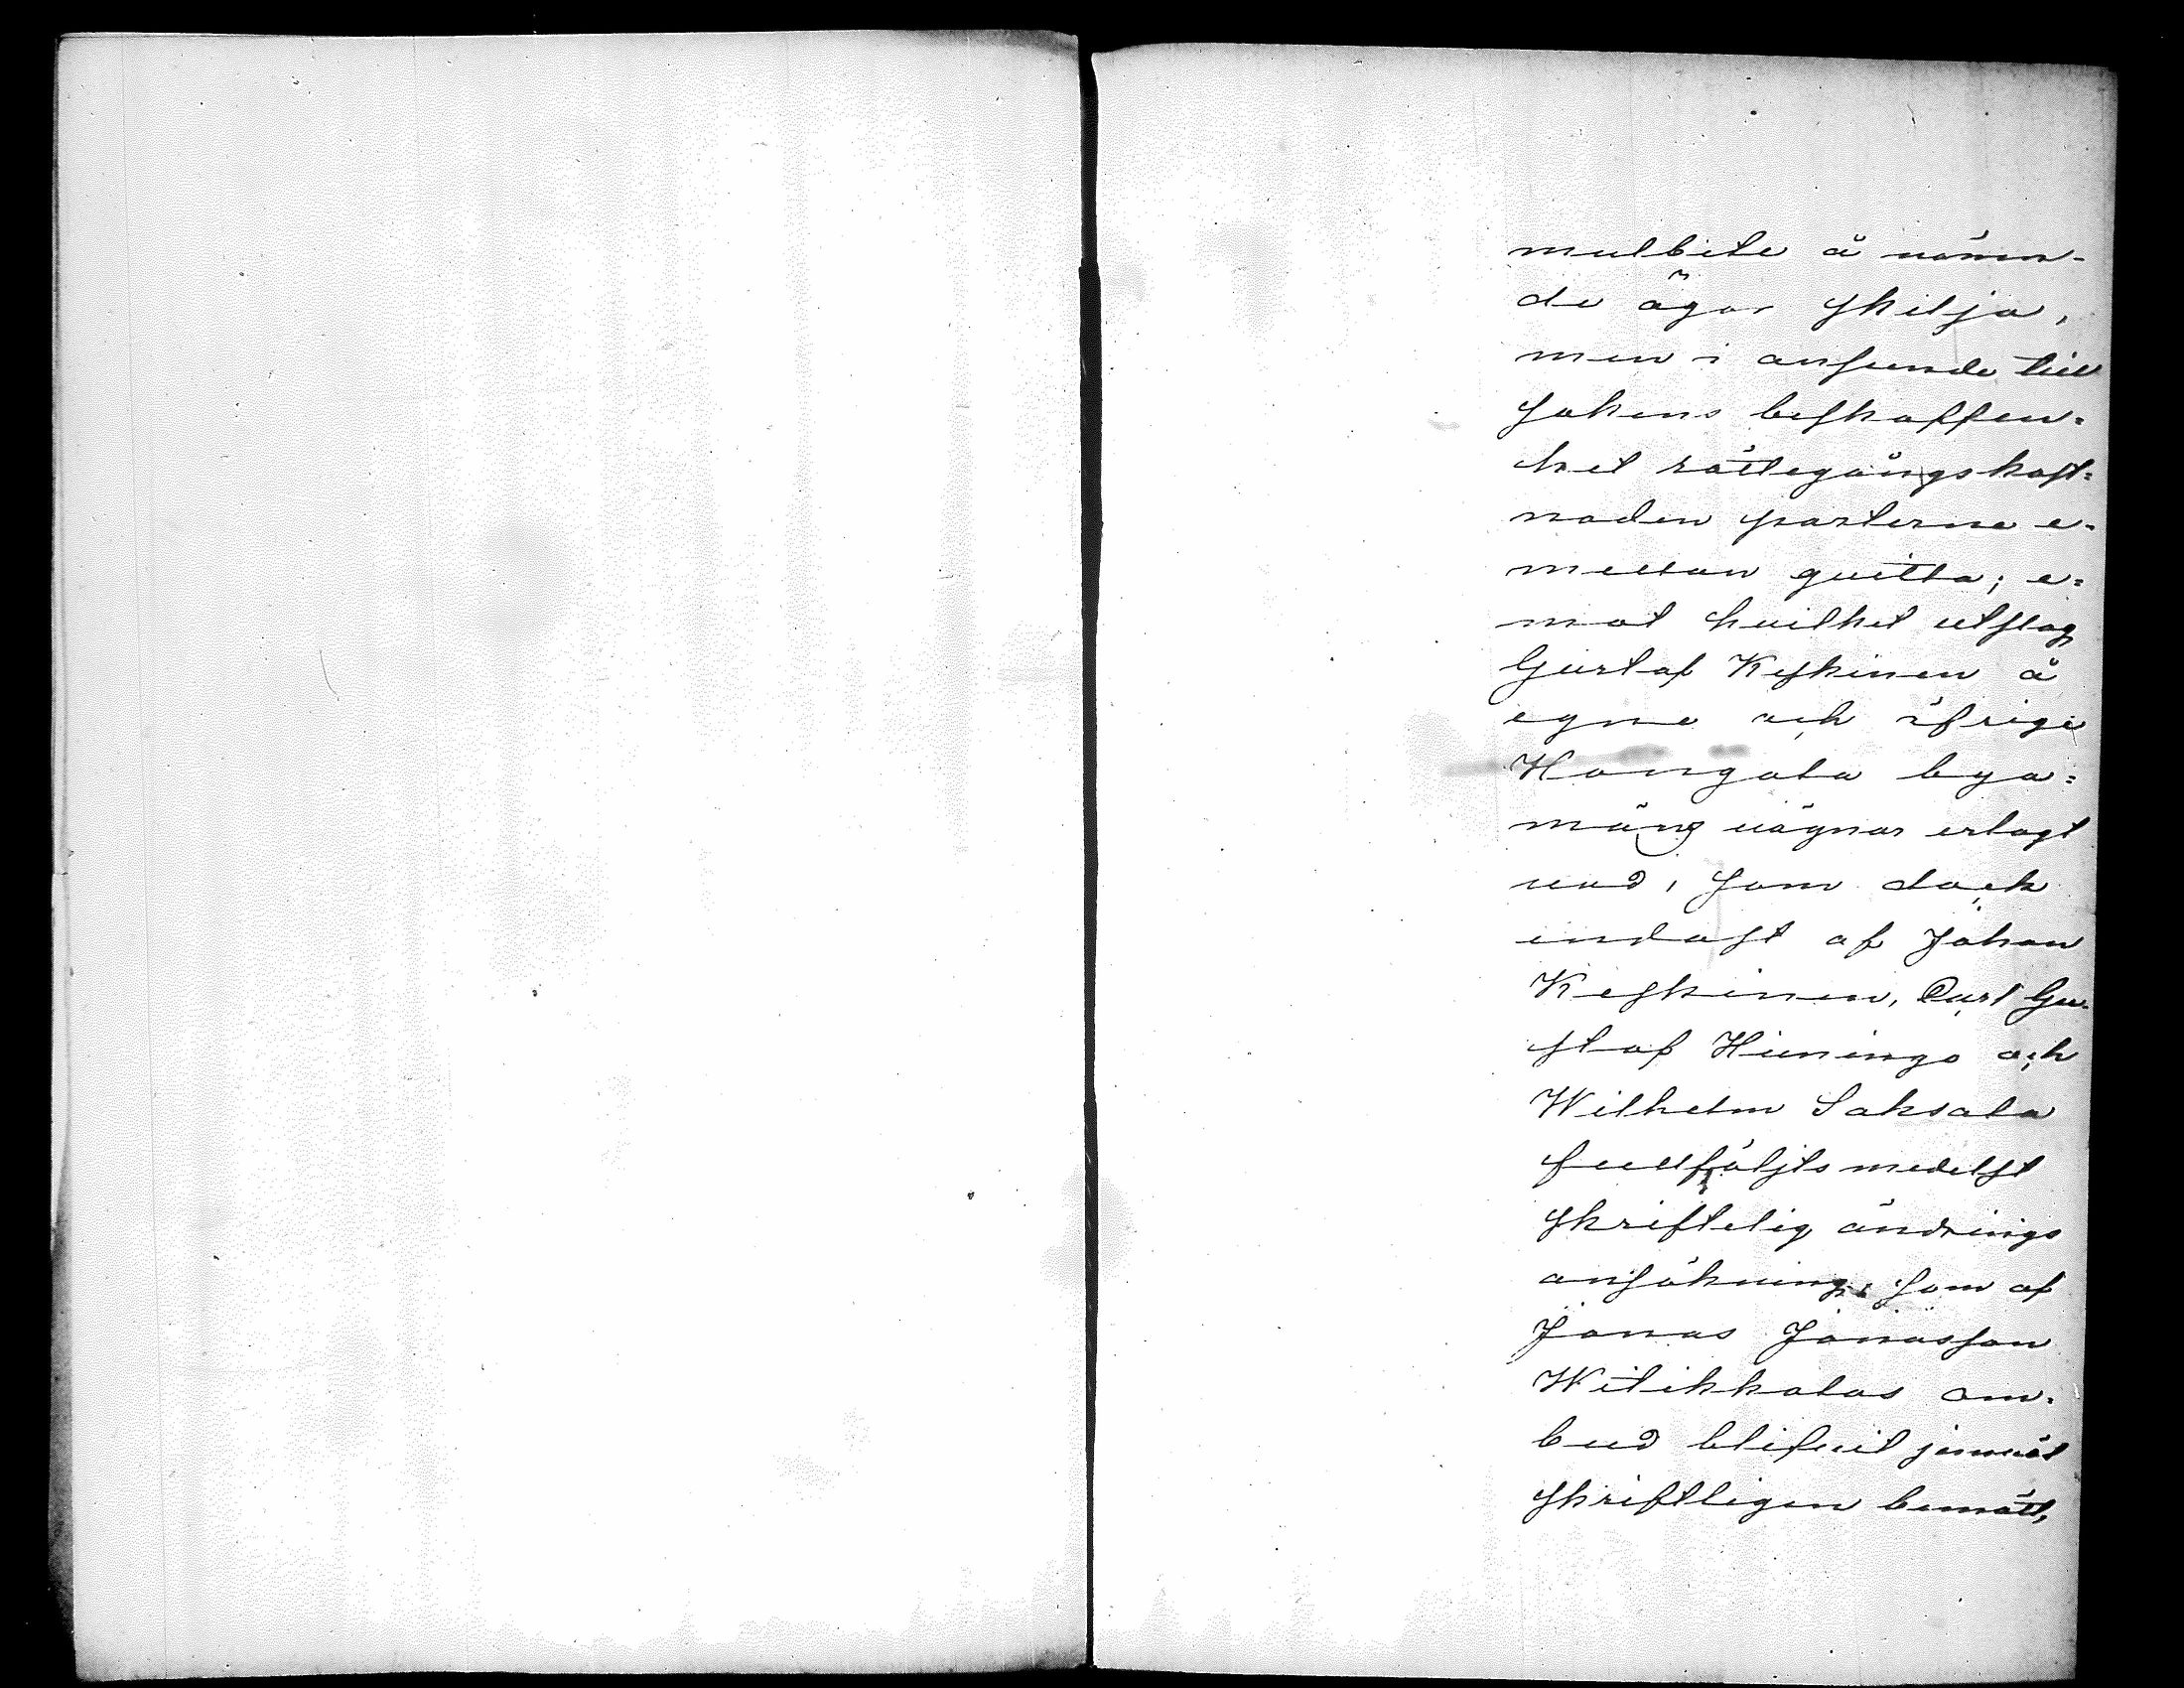 mulbete å nämn-
de ägor skilja,
men i anseende till
sakens beskaffen-
het rättegångskost-
naden parterne e-
mellan quitta; e-
mot hvilket utslag
Gustaf Keskinen å
egne och öfrige
Hongola bya-
mäns vägnar erlagt
vad, som doch
endast af Johan
Keskinen, Carl Gu-
staf Huninge och
Wilhelm Saksala
fullföljts medelst
skriftelig ändrings
ansökning, som af
Jonas Jonasson
Witikkalas om-
bud blifvit jemväl
skriftligen bemött,